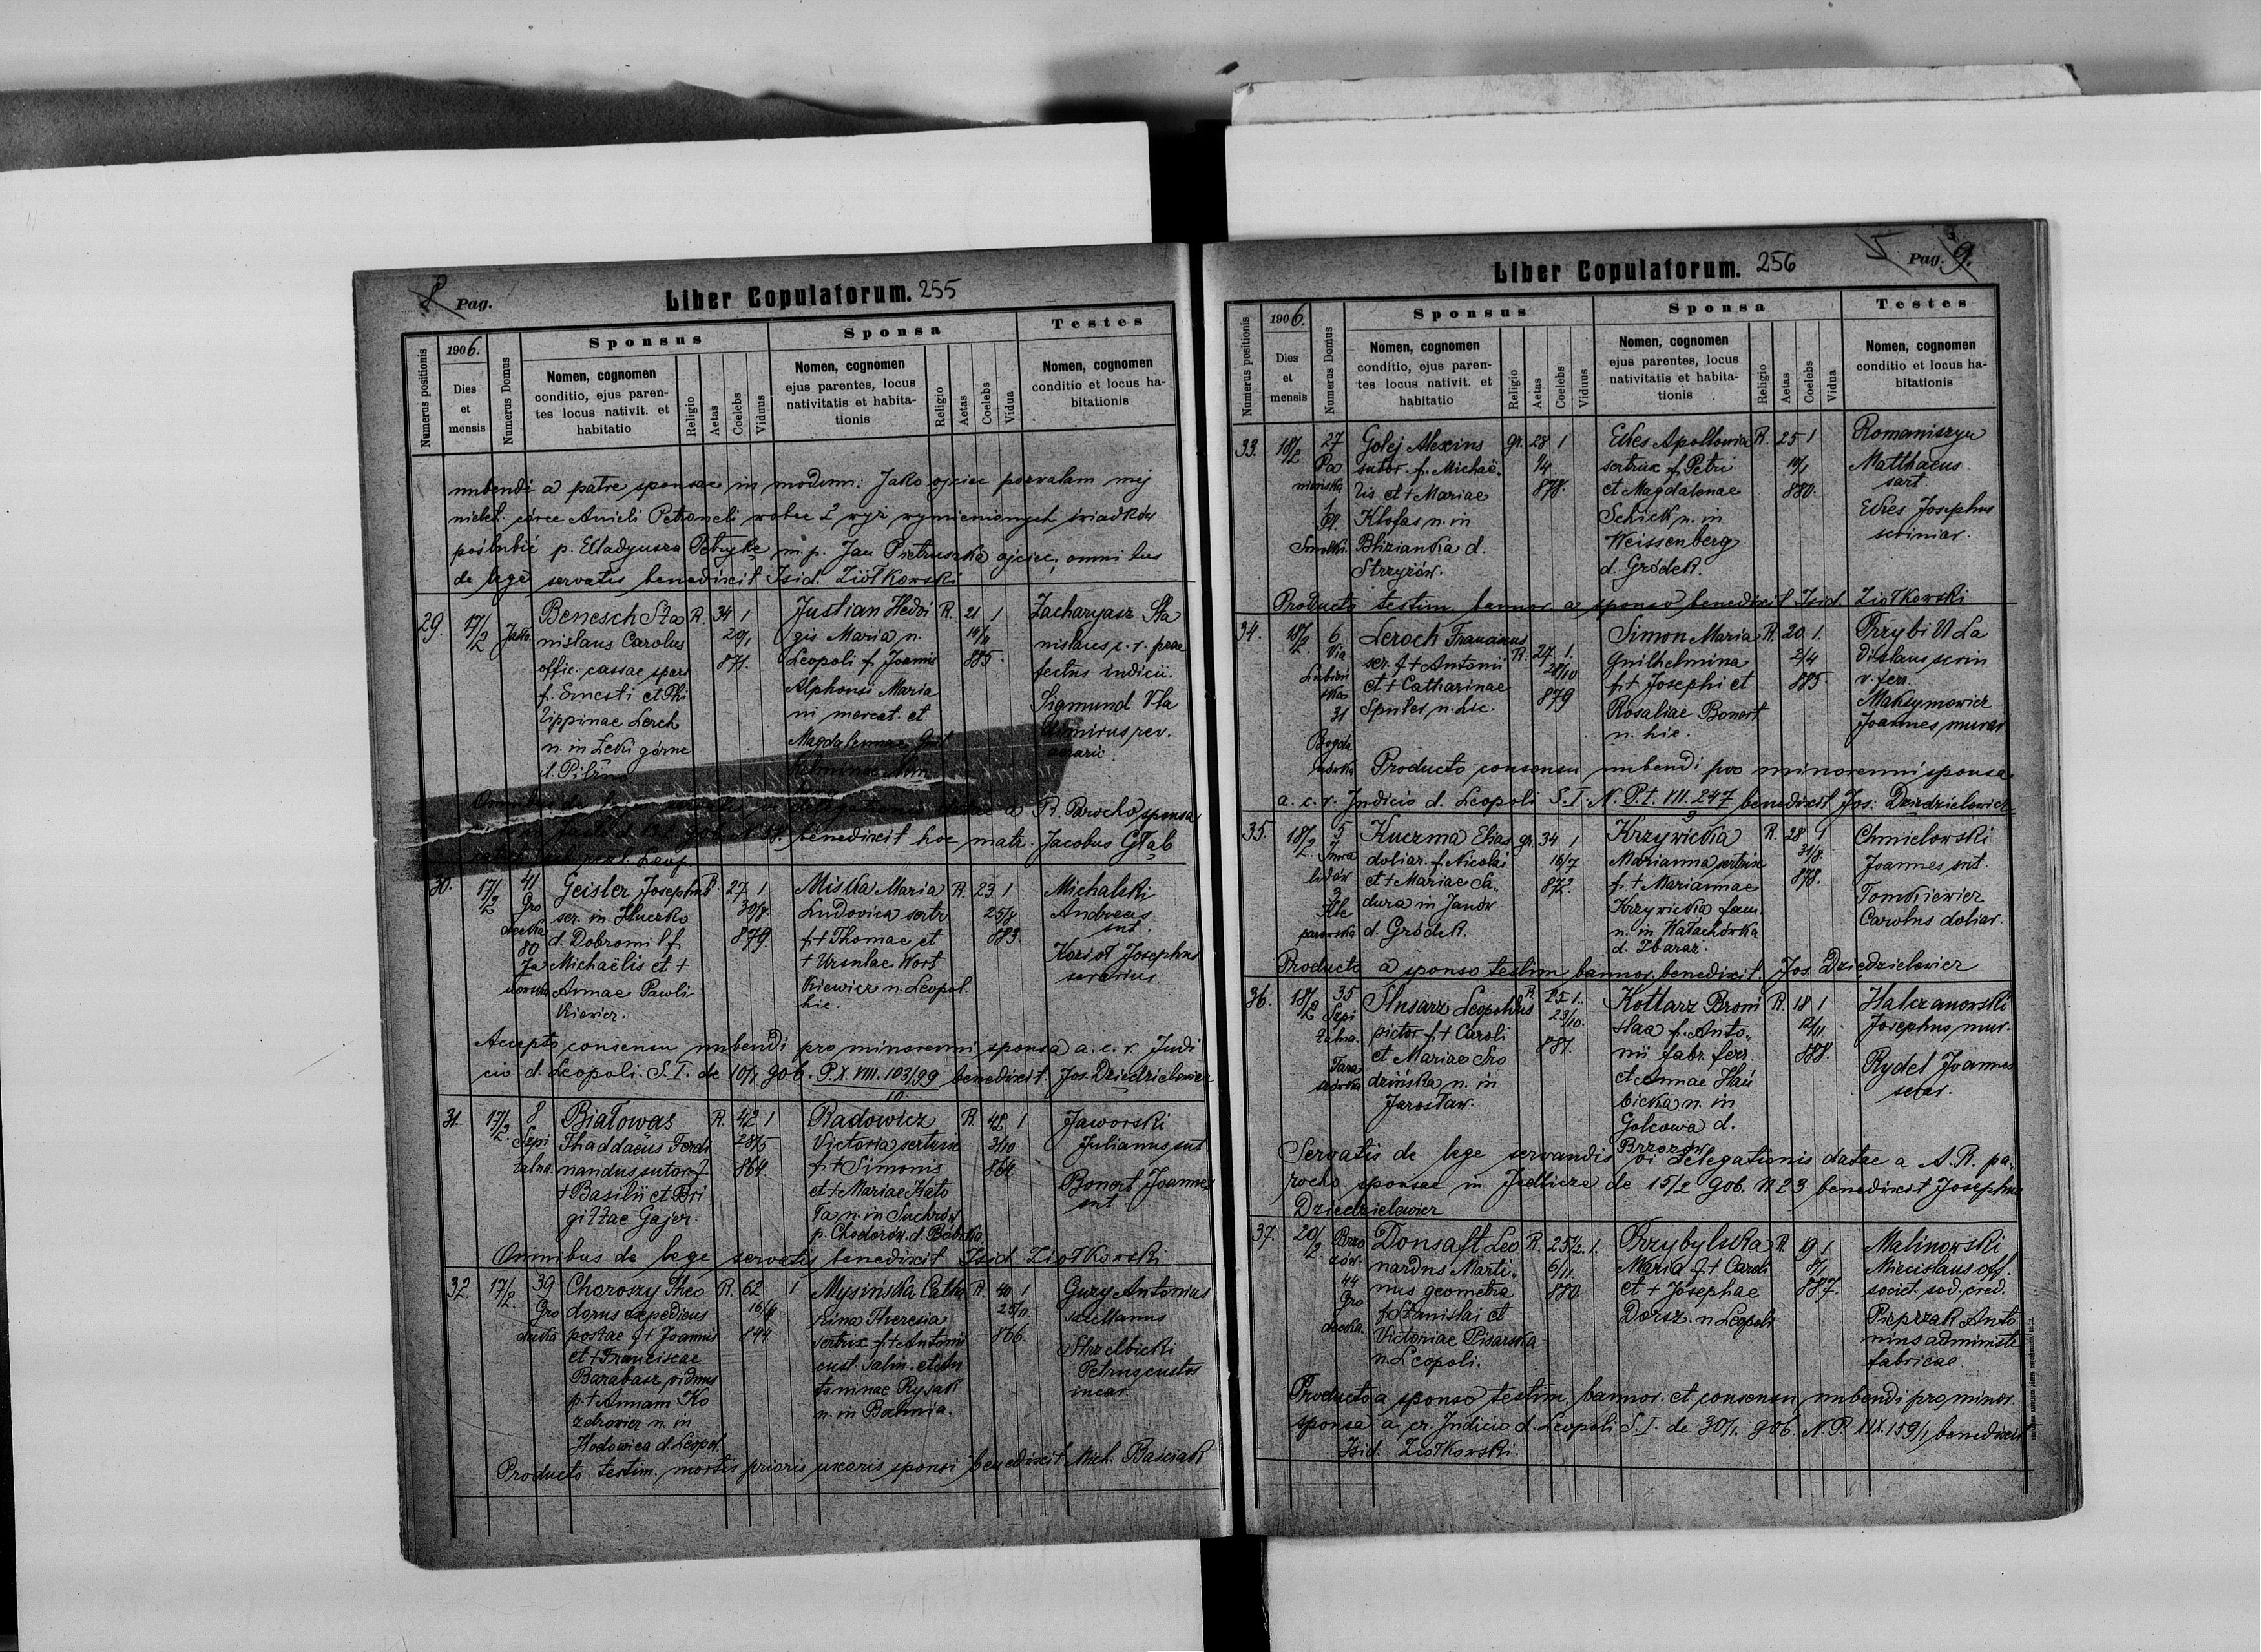 8 Pag.
Liber Copulatorum. 255
Numerus positionis
1906.
Dies
et
mensis
Numerus Domus
Sponsus
Nomen, cognomen
conditio, ejus paren-
tes locus nativit. et
habitatio
Religio
Aetas
Coelebs
Viduus
Sponsa
Nomen, cognomen
ejus parentes, locus
nativitatis et habita-
tionis
Religio
Aetas
Coelebs
Vidua
Testes
Nomen, cognomen
conditio et locus ha-
bitationis
nubendi a patre sponsae in modum: Jako ojciec pozwalam mej
nielet. córce Anieli Petroneli wobec 2 wyż wymienionych świadków
poślubić p. Władysława Petrykę m. p. Jan Pietruszka ojciec, omnibus
de lege servatis benedixit Isid. Ziółkowski
29.
17/2
Jasło.
Benesch Sta
nislaus Carolus
offic. cassae spars
f. Ernesti et Phi
lippinae Lerch
n. in Łęki górne
d. Pilzno
R.
34 1
20/1
871.
Justian Hedvi
gis Maria n.
Leopoli f. Joannis
Alphonsi Maria
ni mercat. et
Magdalenae
R.
21 1
14/11
885.
Zacharyasz Sta
nislaus c. r. prae
fectus indicii.
Sigmund Vla
dimirus rev.
aerarii
a R. Parocho sponsa
benedixit hoc matr. Jacobus Głąb
30.
17/2
41
Gro
decka
80
Ja
nowska
Geisler Josephus
ser. in Huczko
d. Dobromil f.
Michaëlis et +
Annae Pawli
kiewicz.
R.
27 1
30/8.
879.
Miska Maria
Ludovica sertr.
f + Thomae et
+ Ursulae Wort
kiewicz n. Leopol.
hic.
R.
23 1
25/8
883.
Michalski
Andreas
sut.
Kozioł Josephus
serarius
Accepto consensu nubendi pro minorenni sponsa a. c. r. Judi
cio d. Leopoli. S. I. de 10/1 906. P. X. VIII. 103/99 benedixit Jos. Dziedzielewicz
10.
31.
17/2
8
Szpi
talna.
Białowąs
Thaddaeus Ferdi
nandus sutor f
+ Basilii et Bri
gittae Gajer.
R.
42 1
28/5
864.
Radowicz
Victoria sertrix
f. + Simonis
et + Mariae Kato
Ta n. in Suchrów
p. Chodorów d. Bóbrka.
R.
42 1
3/10
864.
Jaworski
Julianus sut
Bonert Joannes
sut.
Omnibus de lege servatis benedixit Isid. Ziółkowski
32.
17/2
39
Gro
decka
Choroszy Theo
dorus expeditus
postae f. + Joannis
et + Franciscae
Barabasz viduus
p. + Annam Ko
zdrowicz n. in
Hodowica d. Leopol.
R.
62 1
16/4
844
Mysińska Catha
rina Theresia
sertrix f. + Antonii
cust. salin. et An
toninae Rysak
n. in Bochnia.
R.
40 1
25/11.
866.
Guzy Antonius
Strzelbicki
Petrus custos
incar.
Producto testim. mortis prioris uxoris sponsi benedixit Mich. Baściak
Pag. 9.
Liber Copulatorum. 256
Numerus positionis
1906.
Dies
et
mensis
Numerus Domus
Sponsus
Nomen, cognomen
conditio, ejus paren-
tes locus nativit. et
habitatio
Religio
Aetas
Coelebs
Viduus
Sponsa
Nomen, cognomen
ejus parentes, locus
nativitatis et habita-
tionis
Religio
Aetas
Coelebs
Vidua
Testes
Nomen, cognomen
conditio et locus ha-
bitationis
33.
18/2
27
Golej Alexius
sutor. f. Michaë-
lis et + Mariae
Klofas n. in
Blizianka d.
Strzyżów.
gr.
28 1
1/4.
878.
Ekes Apollonia
sertrix f. Petri
et Magdalenae
Schick n. in
Weissenberg
d. Gródek.
R.
25 1
880.
Romaniszyn
Matthaeus
sart.
Ekes Josephus
scriniar.
Producto testim. bannor. a sponso benedixit Isid. Ziółkowski
34.
18/2.
6.
31
Bogda
nówka
Leroch Franciscus
ser. f + Antonii
et + Catharinae
n. hic.
R.
27 1.
28/10
879
Simon Maria
Guilhelmina
f. + Josephi et
Rosaliae Bonert
n. hic.
R.
20 1.
2/4
885.
Przybił La
dislaus scrin
v. ferr.
Maksymowicz
Joannes murar
Producto consensu nubendi pro minorenni sponsa
a. c. r. Judicio d. Leopoli S. I. N. P. I. VII. 247 benedixit Jos. Dziedzielewicz
9
35.
18/2.
5
Inwa
lidów
3
Kuczma Elias
doliar. f. Nicolai
et + Mariae Sa-
dura in Janów
d. Gródek.
gr.
34 1
16/7
872.
Krzywicka
Marianna sertrix
f. + Mariannae
Krzywicka fam.
n. in Wałachówka
d. Zbaraż.
R.
28 1
31/8.
878.
Chmielowski
Joannes sut.
Tomkiewicz
Carolus doliar.
Producto a sponso testim. bannor. benedixit Jos. Dziedzielewicz
36.
18/2
35
Szpi
talna.
Tara
sówka
Slusarz Leopoldus
pictor f. + Caroli
et Mariae Sro
dzińska n. in
Jarosław.
R.
25 1.
23/10.
881.
Kotlarz Broni
slaa f. Anto-
nii fabr. ferr.
et Annae Hań
bicka n. in
Golcowa d.
Brzozów
R.
18 1
12/11
888.
Halczanowski
Josephus mur.
Rydel Joannes
serar.
Servatis de lege servandis vi delegationis datae a A. R. pa-
rocho sponsae in Jedlicze de 15/2 906. N 23 benedixit Josephus
Dziedzielewicz
37.
20/2
44
Gro
decka.
Donsaft Leo
nardus Marti-
nus geometra
f. Stanislai et
Victoriae Pisarska
n. Leopoli.
R.
25 1/2. 1.
6/11.
880.
Przybylska
Maria f. + Caroli
et + Josephae
Dorsz. n Leopoli
R.
19 1
8/1
887.
Malinowski
Miecislaus off.
societ. sod. cred.
Pieprzak Anto
nius administr
fabricae.
Producto a sponso testim. bannor. et consensu nubendi pro minor.
sponsa a. cr. Judicio d. Leopoli S. I. de 30/1. 906. N. P. XIX. 159/1 benedixit
Isid. Ziółkowski.